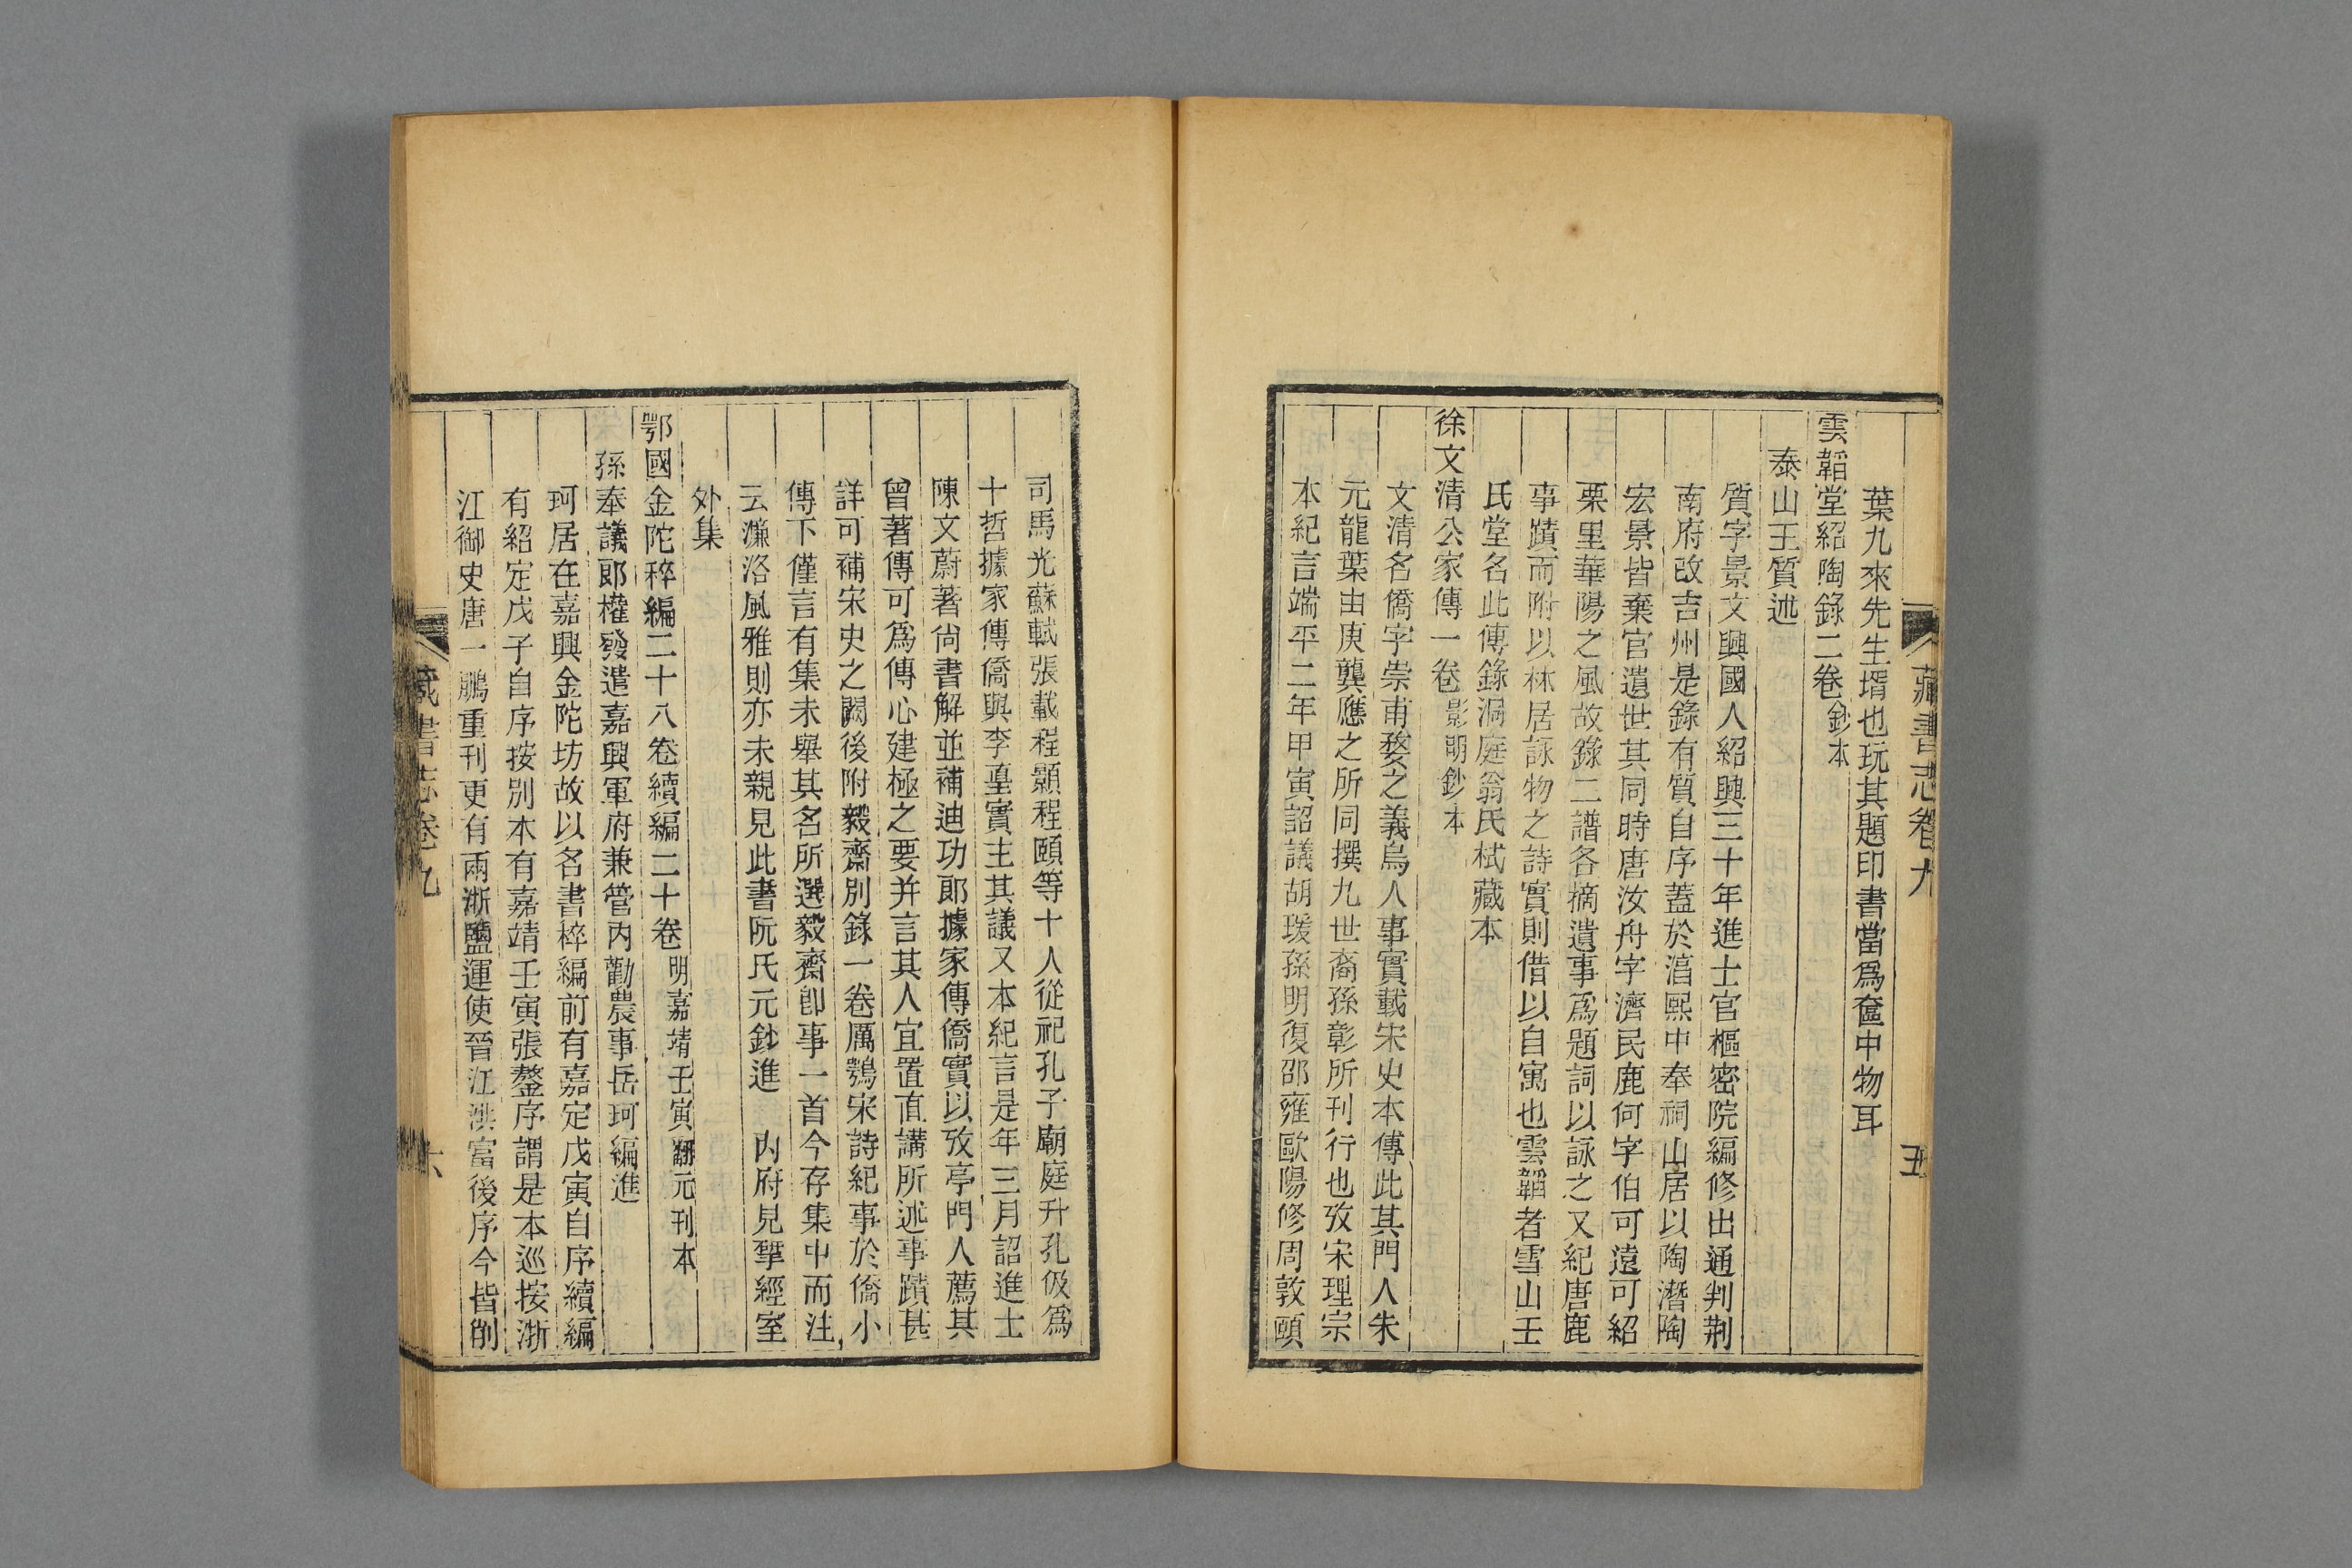 藏書志卷九
五
葉九來先生壻也玩其題印書當爲奩中物耳
雲韜堂紹陶錄二卷鈔本
泰山王質述
質字景文興國人紹興三十年進士官樞密院編修出通判荆
南府改吉州是錄有質自序蓋於湻熙中奉祠山居以陶潛陶
宏景皆棄官遺世其同時唐汝舟字濟民鹿何字伯可遠可紹
栗里華陽之風故錄二譜各摘遺事爲題詞以詠之又紀唐鹿
事蹟而附以林居詠物之詩實則借以自寓也雲韜者雪山王
氏堂名此傳錄洞庭翁氏栻藏本
徐文清公家傳一卷影明鈔本
文清名僑字崇甫婺之義烏人事實載宋史本傳此其門人朱
元龍葉由庚龔應之所同撰九世裔孫彰所刊行也攷宋理宗
本紀言端平二年甲寅詔議胡瑗孫明復邵雍歐陽修周敦頤
司馬光蘇軾張載程顥程頤等十人從祀孔子廟庭升孔伋爲
十哲據家傳僑與李𡌴實主其議又本紀言是年三月詔進士
陳文蔚著尙書解並補迪功郞據家傳僑實以攷亭門人薦其
曾著傳可爲傳心建極之要并言其人宜置直講所述事蹟甚
詳可補宋史之闕後附毅齋別錄一卷厲鶚宋詩紀事於僑小
傳下僅言有集未舉其名所選毅齋卽事一首今存集中而注
云濂洛風雅則亦未親見此書阮氏元鈔進　內府見揅經室
外集
鄂國金陀稡編二十八卷續編二十卷明嘉靖壬寅翻元刊本
孫奉議郞權發遣嘉興軍府兼管內勸農事岳珂編進
珂居在嘉興金陀坊故以名書稡編前有嘉定戊寅自序續編
有紹定戊子自序按別本有嘉靖壬寅張鏊序謂是本巡按浙
江御史唐一鵬重刊更有兩浙鹽運使晉江洪富後序今皆削
藏書志卷九
六